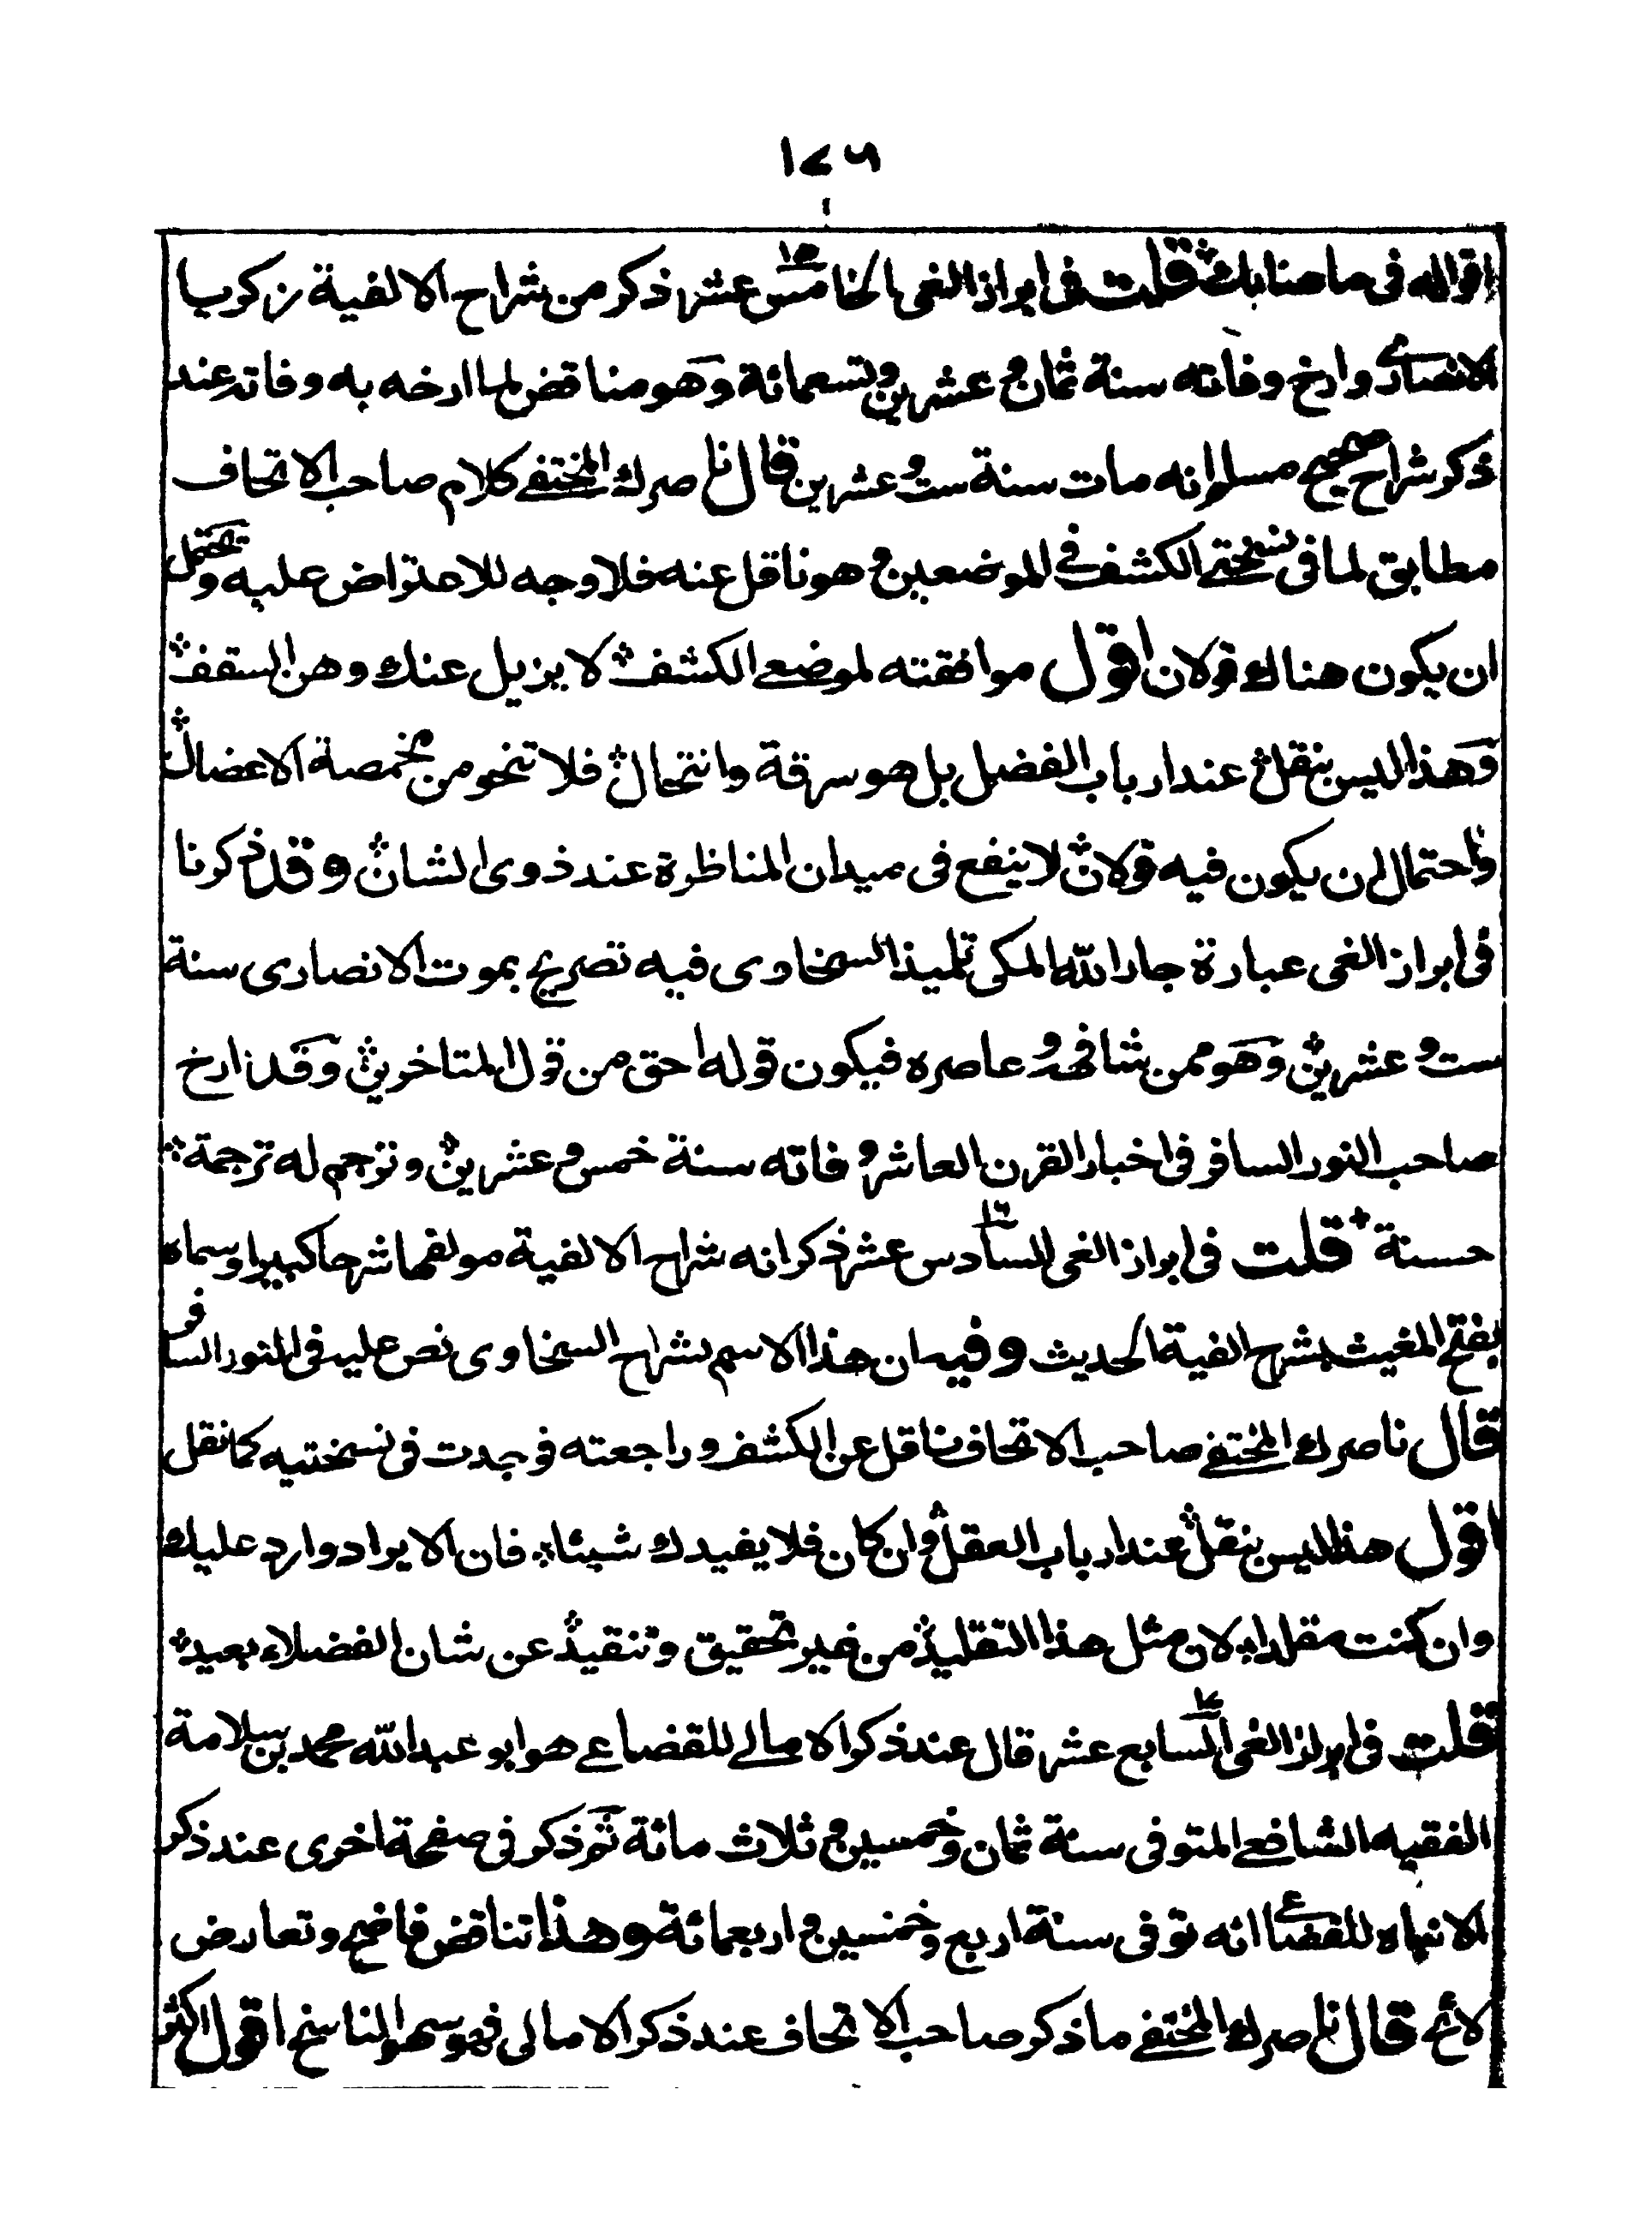 ١٧٦
اقواله فى ما صنابك قلت فى ابراز الغى الخامس عشر ذكر من شراح الالفية زكريا
الانصارى وارخ وفاته سنة ثمان وعشرين وتسعمائة وهو مناقض لما ارخه به وفاته عند
ذكر شراح صحيح مسلم انه مات سنة ست وعشرين قال ناصرك المختفے كلام صاحب الاتحاف
مطابق لما فى نسختے الكشف فے الموضعين وهو ناقل عنه فلا وجه للاعتراض عليه ويحتمل
ان يكون هناك قولان اقول موافقته لموضعے الكشف لا يزيل عنك وهن السقف
وهذا ليس بنقل عند ارباب الفضل بل هو سرقة وانتحال فلا تنجو من مخمصة الاعضال
واحتمال ان يكون فيه قولان لا ينفع فى ميدان المناظرة عند ذوى الشان وقد ذكرنا
فى ابراز الغى عبارة جار الله المكى تلميذ السخاوى فيه تصريح بموت الانصارى سنة
ست وعشرين وهو ممن شافهه وعاصره فيكون قوله احق من قول المتاخرين وقد ارخ
صاحب النور السافر فى اخبار القرن العاشر وفاته سنة خمس وعشرين وترجم له ترجمة
حسنة قلت فى ابراز الغى السادس عشر ذكر انه شراح الالفية مولفها شرحا كبيرا وسماه
بفتح المغيث بشرح الفية الحديث وفيه ان هذا الاسم بشراح السخاوى نص عليه فى النور السافر
قال ناصرك المختفے صاحب الاتحاف ناقل عن الكشف وراجعته فوجدت فى نسختيه كما نقل
اقول هذا ليس بنقل عند ارباب العقل وان كان فلا يفيدك شيئا فان الايراد وارد عليك
وان كنت مقلدا لان مثل هذا التقليد من غير تحقيق وتنقيد عن شان الفضلاء بعيد
قلت فى ابراز الغى السابع عشر قال عند ذكر الامالے للقضاعے هو ابو عبد الله محمد بن سلامة
الفقيه الشافعے المتوفى سنة ثمان وخمسين وثلاث مائة ثم ذكر فى صفحة اخرى عند ذكر
الانباه للقضاعے انه توفى سنة اربع وخمسين واربعمائة وهذا تناقض فاضح وتعارض
لائح قال ناصرك المختفے ما ذكر صاحب الاتحاف عند ذكر الامالى فهو سهو الناسخ اقول اكثر